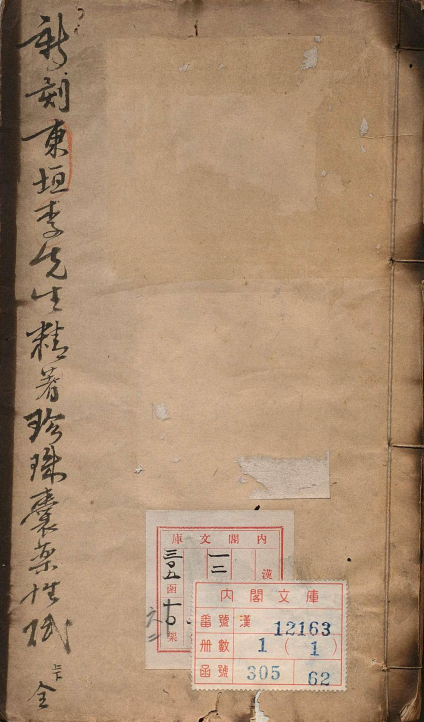 新刻東垣李先生精著珍珠囊藥性賦 上下 全
內閣文庫
漢
一二
三〇五
函
架
內閣文庫
番號 漢 12163
册數 1 (1)
函號 305 62